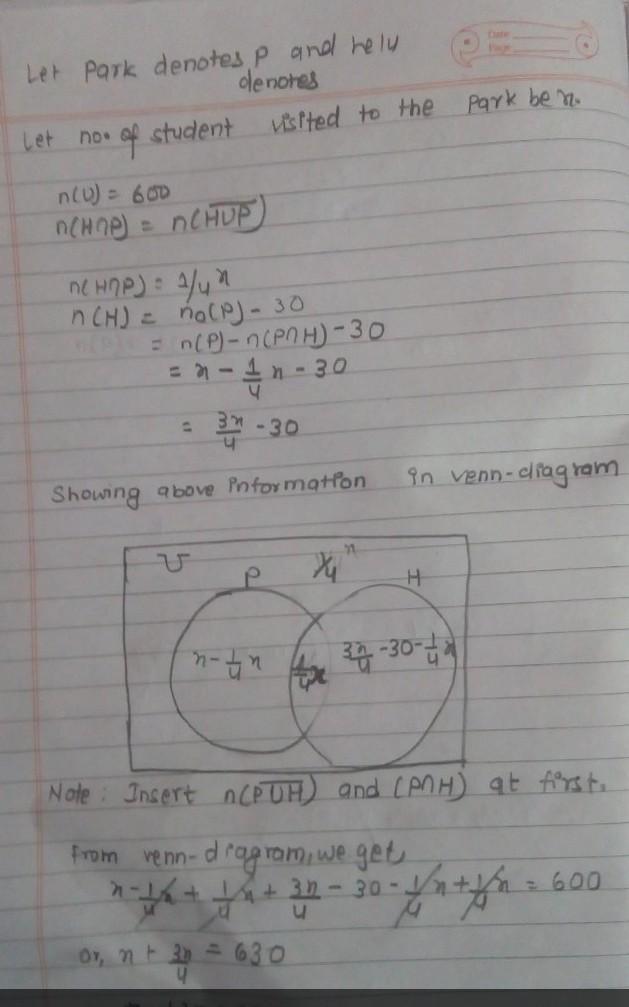 Date:
Page:
Let Park denotes P and helu
denotes
Let no. of student visited to the park be x.
n(U) = 600
n(H∩P) = n(\overline{H∪P})
n(H∩P) = 1/4 x
n(H) = n₀(P) - 30
= n(P) - n(P∩H) - 30
= x - \frac{1}{4} x - 30
= \frac{3x}{4} - 30
Showing above information in venn-diagram
U
P
1/4 x
H
x - \frac{1}{4} x
\frac{1}{4} x
\frac{3x}{4} - 30 - \frac{1}{4} x
Note: Insert n(\overline{P∪H}) and (P∩H) at first.
From venn-diagram, we get,
x - \frac{1}{4} x + \frac{1}{4} x + \frac{3x}{4} - 30 - \frac{1}{4} x + \frac{1}{4} x = 600
or, x + \frac{3x}{4} = 630